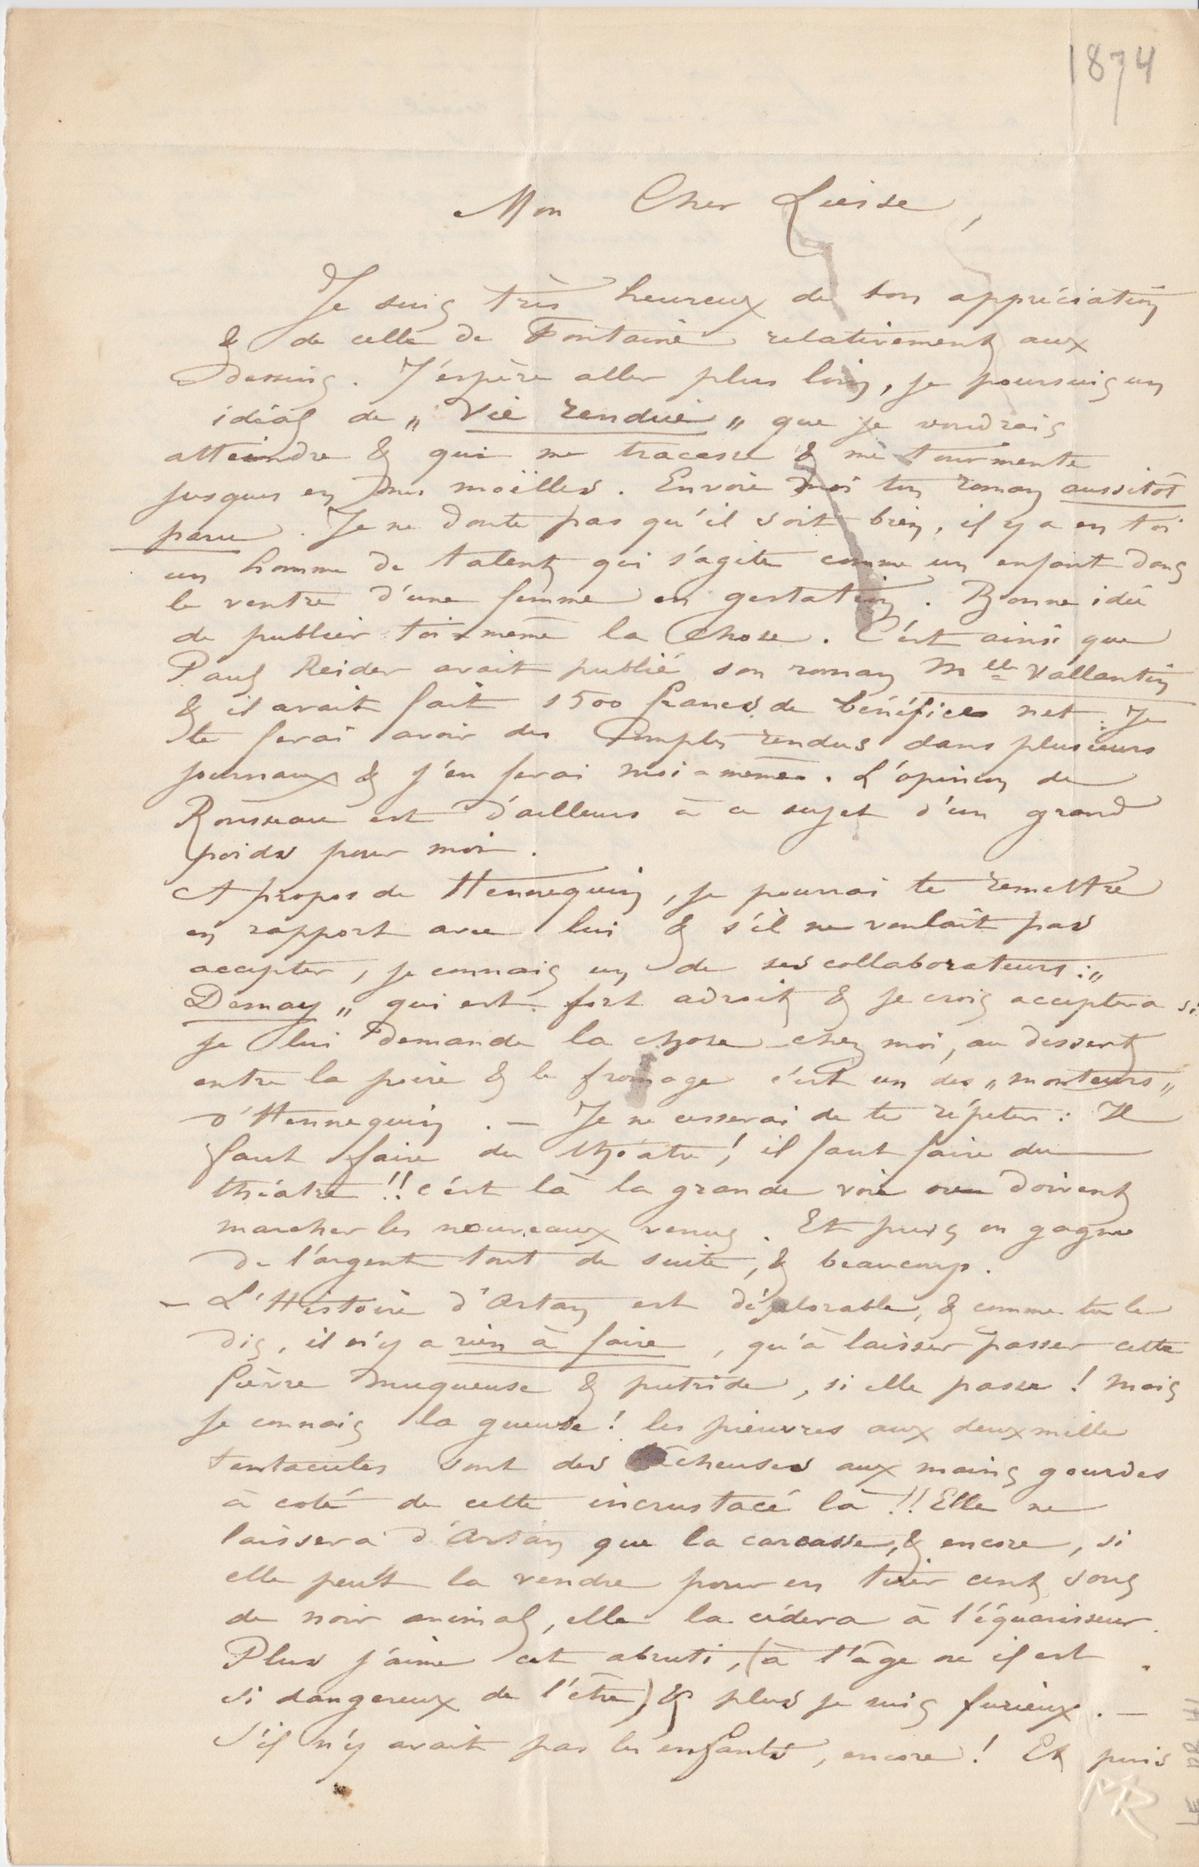 1874
Mon Cher Liesse,
Je suis très heureux de ton appréciation
& de celle de Fontaine relativement aux
dessins. J'espère aller plus loin, je poursuis un
idéal de „ Vie rendue „ que je voudrais
atteindre & qui me tracasse & me tourmente
jusques en mes moëlles. Envoie moi ton roman aussitôt
paru. Je ne doute pas qu'il soit bien, il y a en toi
un homme de talent qui s'agite comme un enfant dans
le ventre d'une femme en gestation. Bonne idée
de publier toi-même la chose. C'est ainsi que
Paul Heider avait publié son roman Mlle Vallantin
& il avait fait 1500 francs de bénéfices net. Je
te ferai avoir des Comptes rendus dans plusieurs
journaux & j'en ferai moi-même. L'opinion de
Rousseau est d'ailleurs à ce sujet d'un grand
poids pour moi.
A propos de Hennequin, je pourrai te remettre
en rapport avec lui & s'il ne voulait pas
accepter, je connais un de ses collaborateurs : „
Demay „ qui est fort adroit & je crois acceptera si
je lui demande la chose chez moi, au dessert
entre la poire & le fromage c'est un des „ monteurs „
d'Hennequin. — Je ne cesserai de te répéter : Il
faut faire du théâtre ! il faut faire du
théâtre !! c'est là la grande voie ou doivent
marcher les nouveaux venus. Et puis on gagne
de l'argent tout de suite, & beaucoup.
— L'Histoire d'Artan est déplorable, & comme tu le
dis, il n'y a rien à faire, qu'à laisser passer cette
fièvre muqueuse & putride, si elle passe ! Mais
je connais la gueuse ! les pieuvres aux deux mille
tentacules sont des lâcheuses aux mains gourdes
à coté de cette incrustacé là !! Elle ne
laissera d'Artan que la carcasse, & encore, si
elle peut la vendre pour en tirer cent sous
de noir animal, elle la cédera à l'équarisseur.
Plus j'aime cet abruti, (à l'âge ou il est
si dangereux de l'être) & plus je suis furieux. —
S'il n'y avait pas les enfants, encore ! Et puis